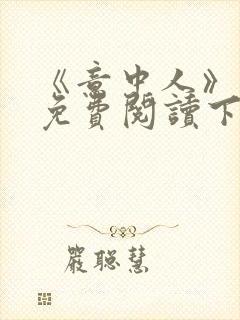 《意中人》
免費閱讀下
嚴聰慧